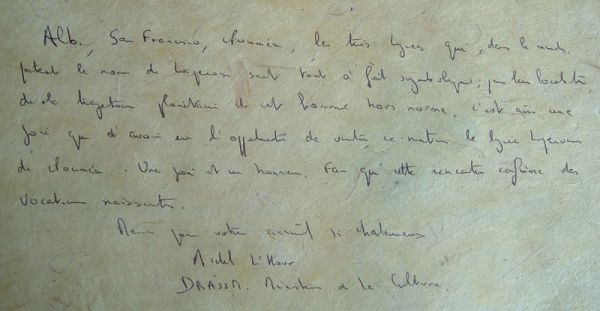 Albi, San Francisco, Nouméa, les trois lycées qui, dans le monde,
portent le nom de Lapérouse sont tout à fait symboliques, par leur localisation,
de la trajectoire planétaire de cet homme hors norme, c'est ainsi une
joie que d'avoir eu l'opportunité de visiter ce matin le Lycée Lapérouse
de Nouméa. Une joie et un honneur. Fasse que cette rencontre confirme des
vocations naissantes.
Merci pour votre accueil si chaleureux
Michel L'Hour
DRASSM. Ministère de la Culture.